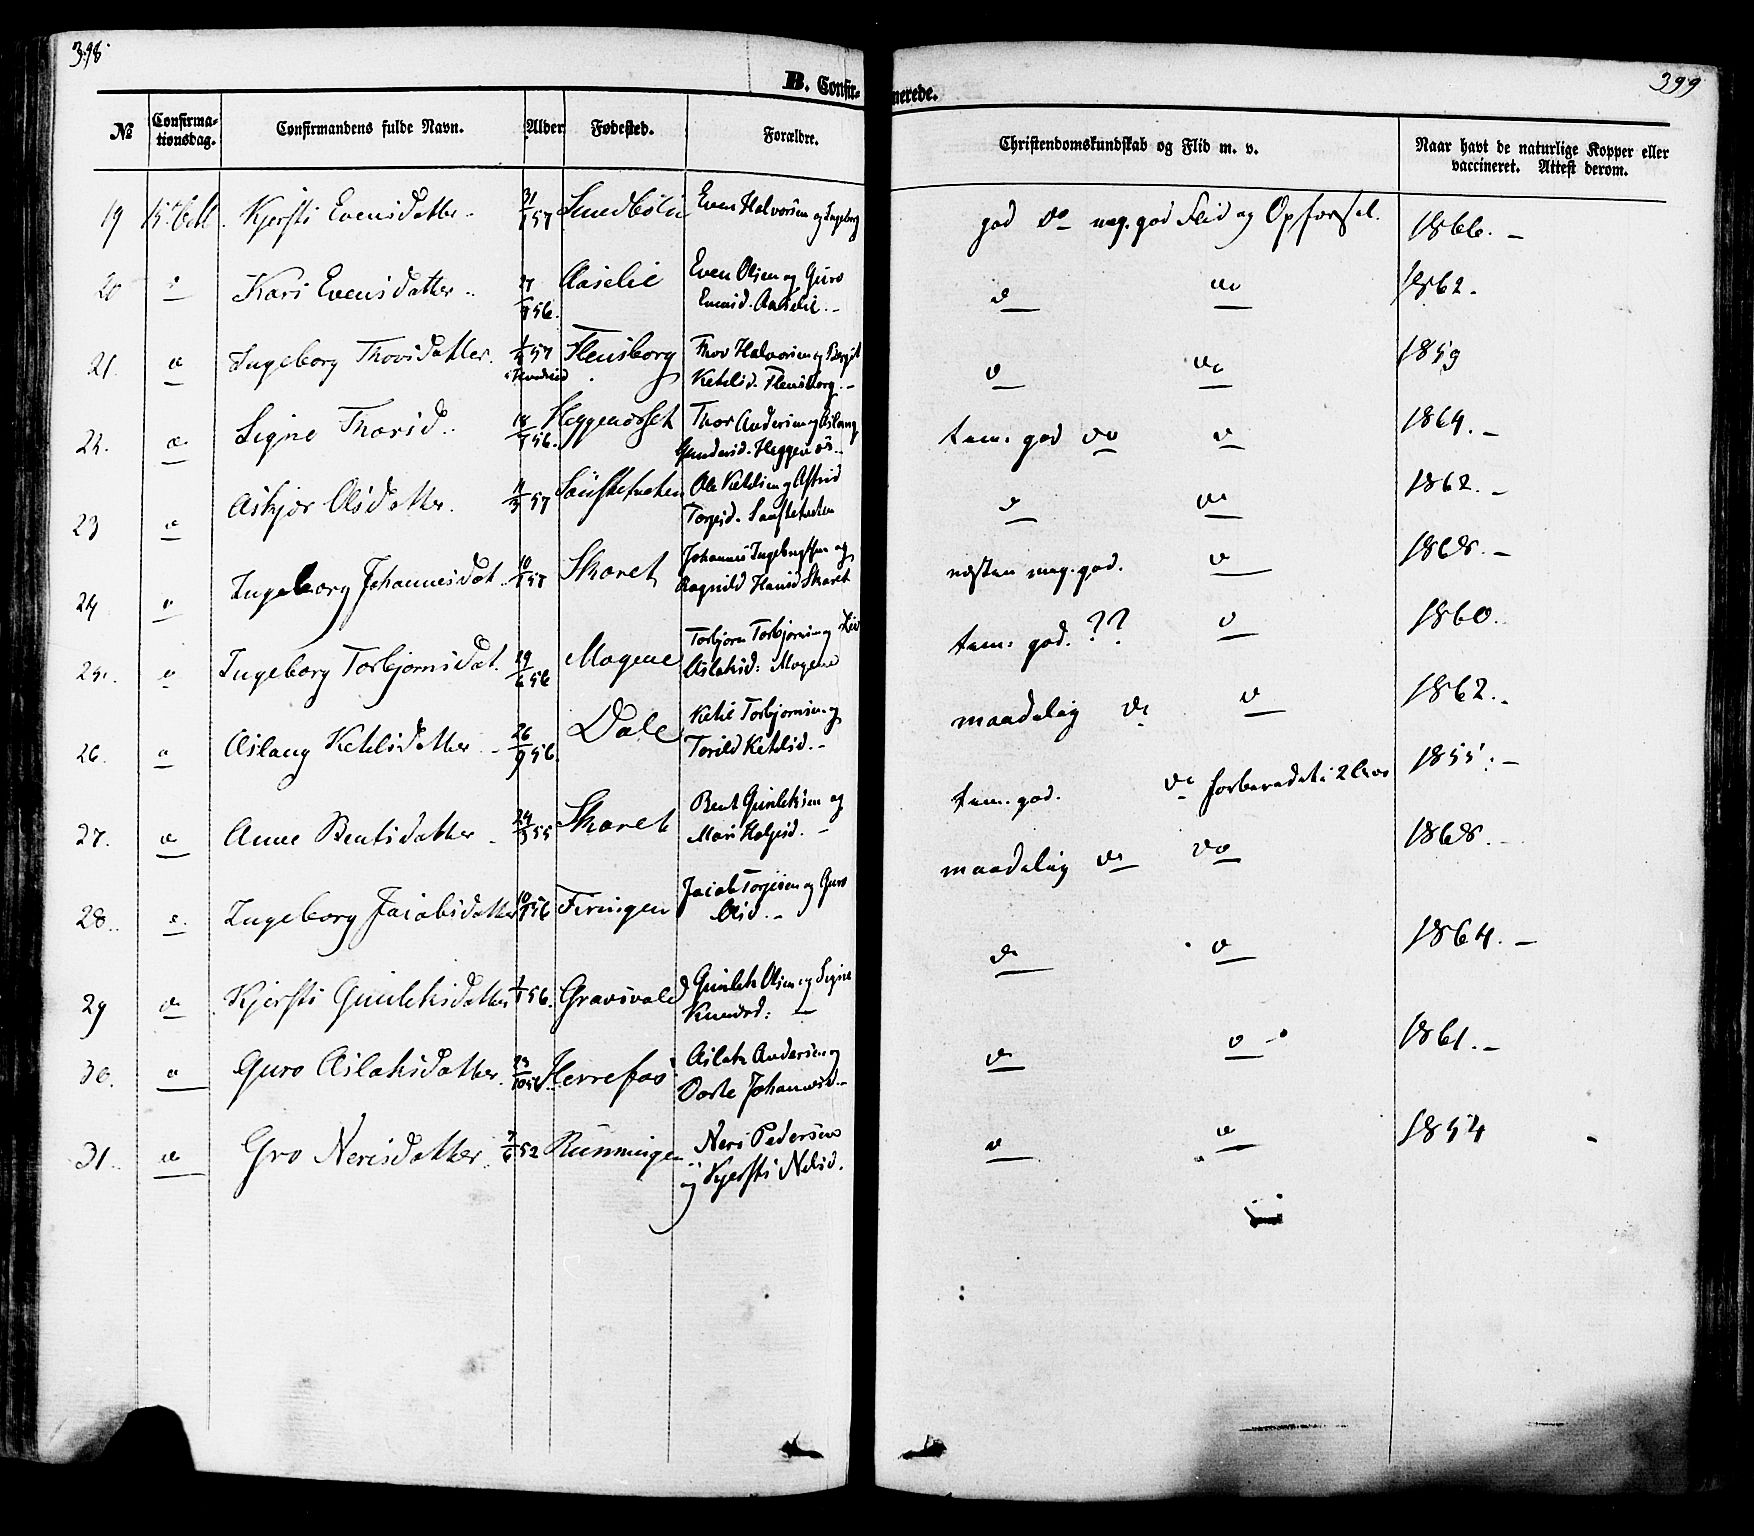 398
399
B. Confir-
merede.
№
Confirma-
tionsdag.
Confirmandens fulde Navn.
Alder
Fødested.
Forældre.
Christendomskundskab og Flid m. v.
Naar havt de naturlige Kopper eller
vaccineret. Attest derom.
19 Kjersti Evensdatter 57 Even Halvorsen og Ingeborg god do meg. god Flid og Opførsel. 1866. –
20 Kari Evensdatter 27 56. Aaselie Even Olsen og Guro
1862.
21. Ingeborg Thovsdatter. 57 Flensborg Thov Halvorsen og Bergit
Ketilsd. Flensborg. – 1859
22. Signe Thorsd. 18 56. Heggenosset Thor Andersen og Aslaug
Gundersd. Heggenos tem. god do 1864. –
23 Askjer Olsdatter. 11 57 Ole Ketilsen og Astrid
Torjesd. 1862. –
24 Ingeborg Johannesdat. 10 57 Skaret Johannes Ingebregtsen og
Ragnild Hansd Skaret næsten meg. god. 1868. –
25. Ingeborg Torbjørnsdat. 29/6 56 Mogene Torbjørn Torbjørnsen og Liv
Aslaksd: Mogene tem: god. ?? 1860.
26. Aslaug Ketilsdatter 26/9 56. Dale Ketil Torbjørnsen og
Torild Ketilsd. – maadelig do 1862. –
27. Anne Bentsdatter 24/3 55 Skaret Bent Gunleksen og
Mari – tem. god. do forberedet i 2 1855. –
28. Ingeborg Jacobsdatter 56 Firingen Jacob Torjesen og Guro
Olsd. – maadelig do do 1868.
29 Kjersti Gunleksdatter 56. Gravsvold Gunlek Olsen og Signe
Knudsd: – 1864. –
30. Guro Aslaksdatter. 23/10 56 Herrefos Aslak Andersen og
Dorte Johannesd. – 1861. –
31. Gro Nerisdatter 52 Rünningen Neri Pedersen
og Kjersti Nelsd. 1854